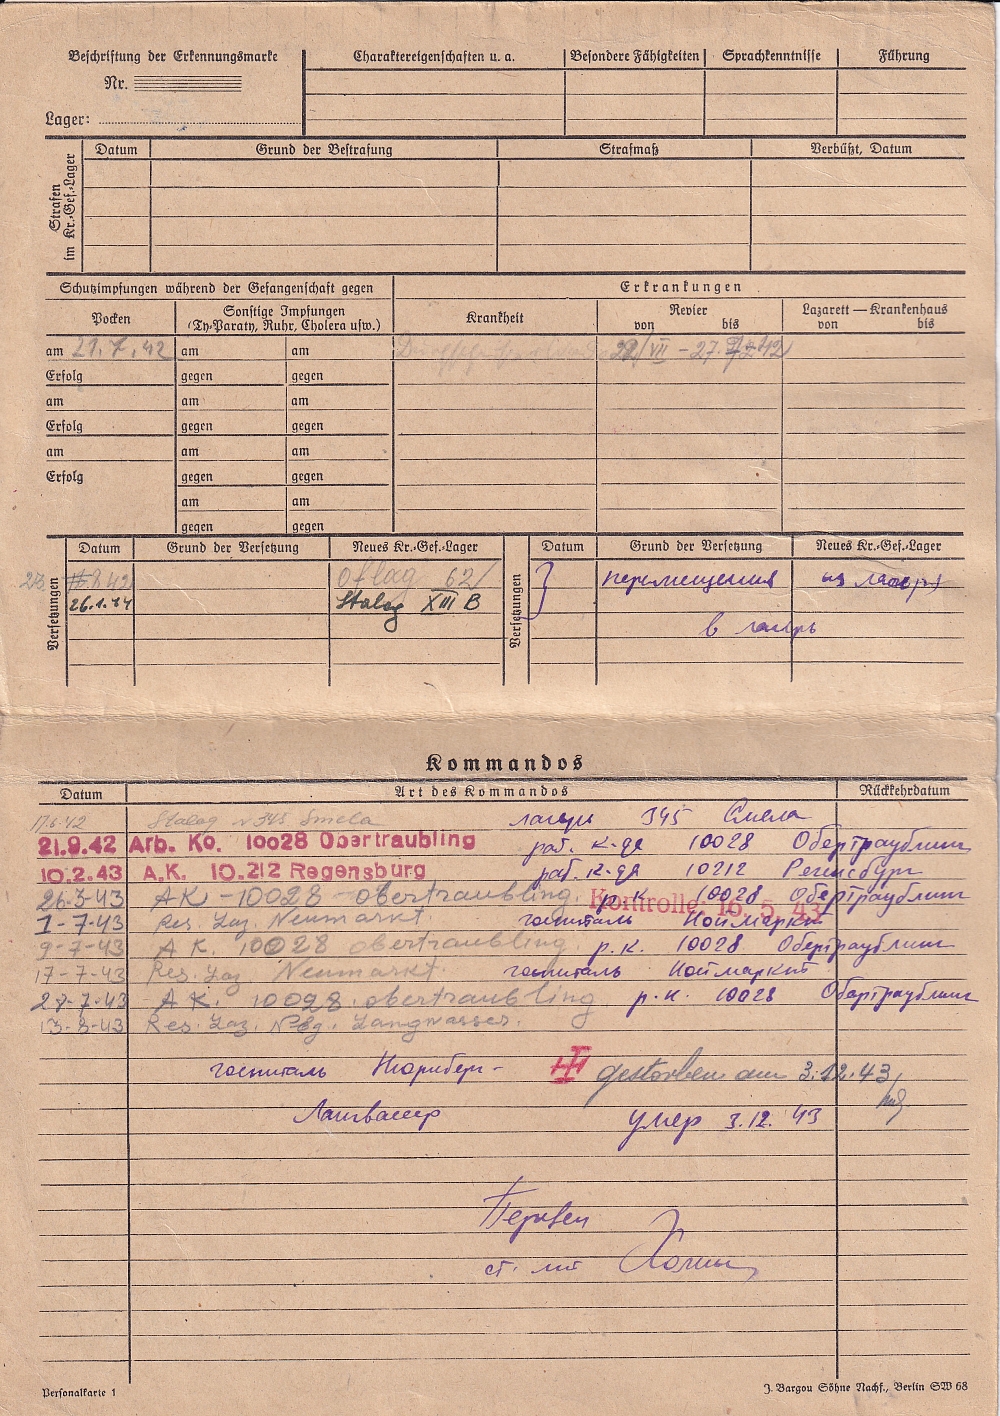 Beschriftung der Erkennungsmarke
Nr.
Lager:
Charaktereigenschaften u. a.
Besondere Fähigkeiten
Sprachkenntnisse
Führung
Strafen im Kr.-Gef.-Lager
Datum
Grund der Bestrafung
Strafmaß
Verbüßt, Datum
Schutzimpfungen während der Gefangenschaft gegen
Erkrankungen
Pocken
Sonstige Impfungen
(Ty-Paraty, Ruhr, Cholera usw.)
Krankheit
Revier
von bis
Lazarett — Krankenhaus
von bis
am 21.7.42 am am 22/VII - 27. 42
Erfolg gegen gegen
am am am
Erfolg gegen gegen
am am am
Erfolg gegen gegen
am am
gegen gegen
Versetzungen
Datum Grund der Versetzung Neues Kr.-Gef.-Lager
8 42 Oflag 62/
26.1.44 Stalag XIII B
Versetzungen
Datum Grund der Versetzung Neues Kr.-Gef.-Lager
перемещения из лагеря
в лагерь
Kommandos
Datum Art des Kommandos Rückkehrdatum
17.6.42 Stalag № 345 Smela лагерь 345 Смела
21.9.42 Arb. Ko. 10028 Obertraubling раб. к-да 10028 Обертраублинг
10.2.43 A.K. 10.212 Regensburg раб. к-да 10212 Регенсбург
26-3-43 AK - 10028 - obertraubling р.к. 10028 Обертраублинг
Kontrolle 16. 5. 43
1-7-43 Res. Laz. Neumarkt. госпиталь Ноймаркт
9-7-43 A K. 10028 obertraubling. р.к. 10028 Обертраублинг
17-7-43 Res. Laz Neumarkt. госпиталь Ноймаркт
28-7-43 A K. 10028. obertraubling р.к. 10028 Обертраублинг
13-8-43 Res. Laz. Nbg. Langwasser.
госпиталь Нюрнберг- gestorben am 3.12.43
Лангвассер умер 3.12.43
Перевел
ст. лт
Personalkarte 1
J. Bargou Söhne Nachf., Berlin SW 68